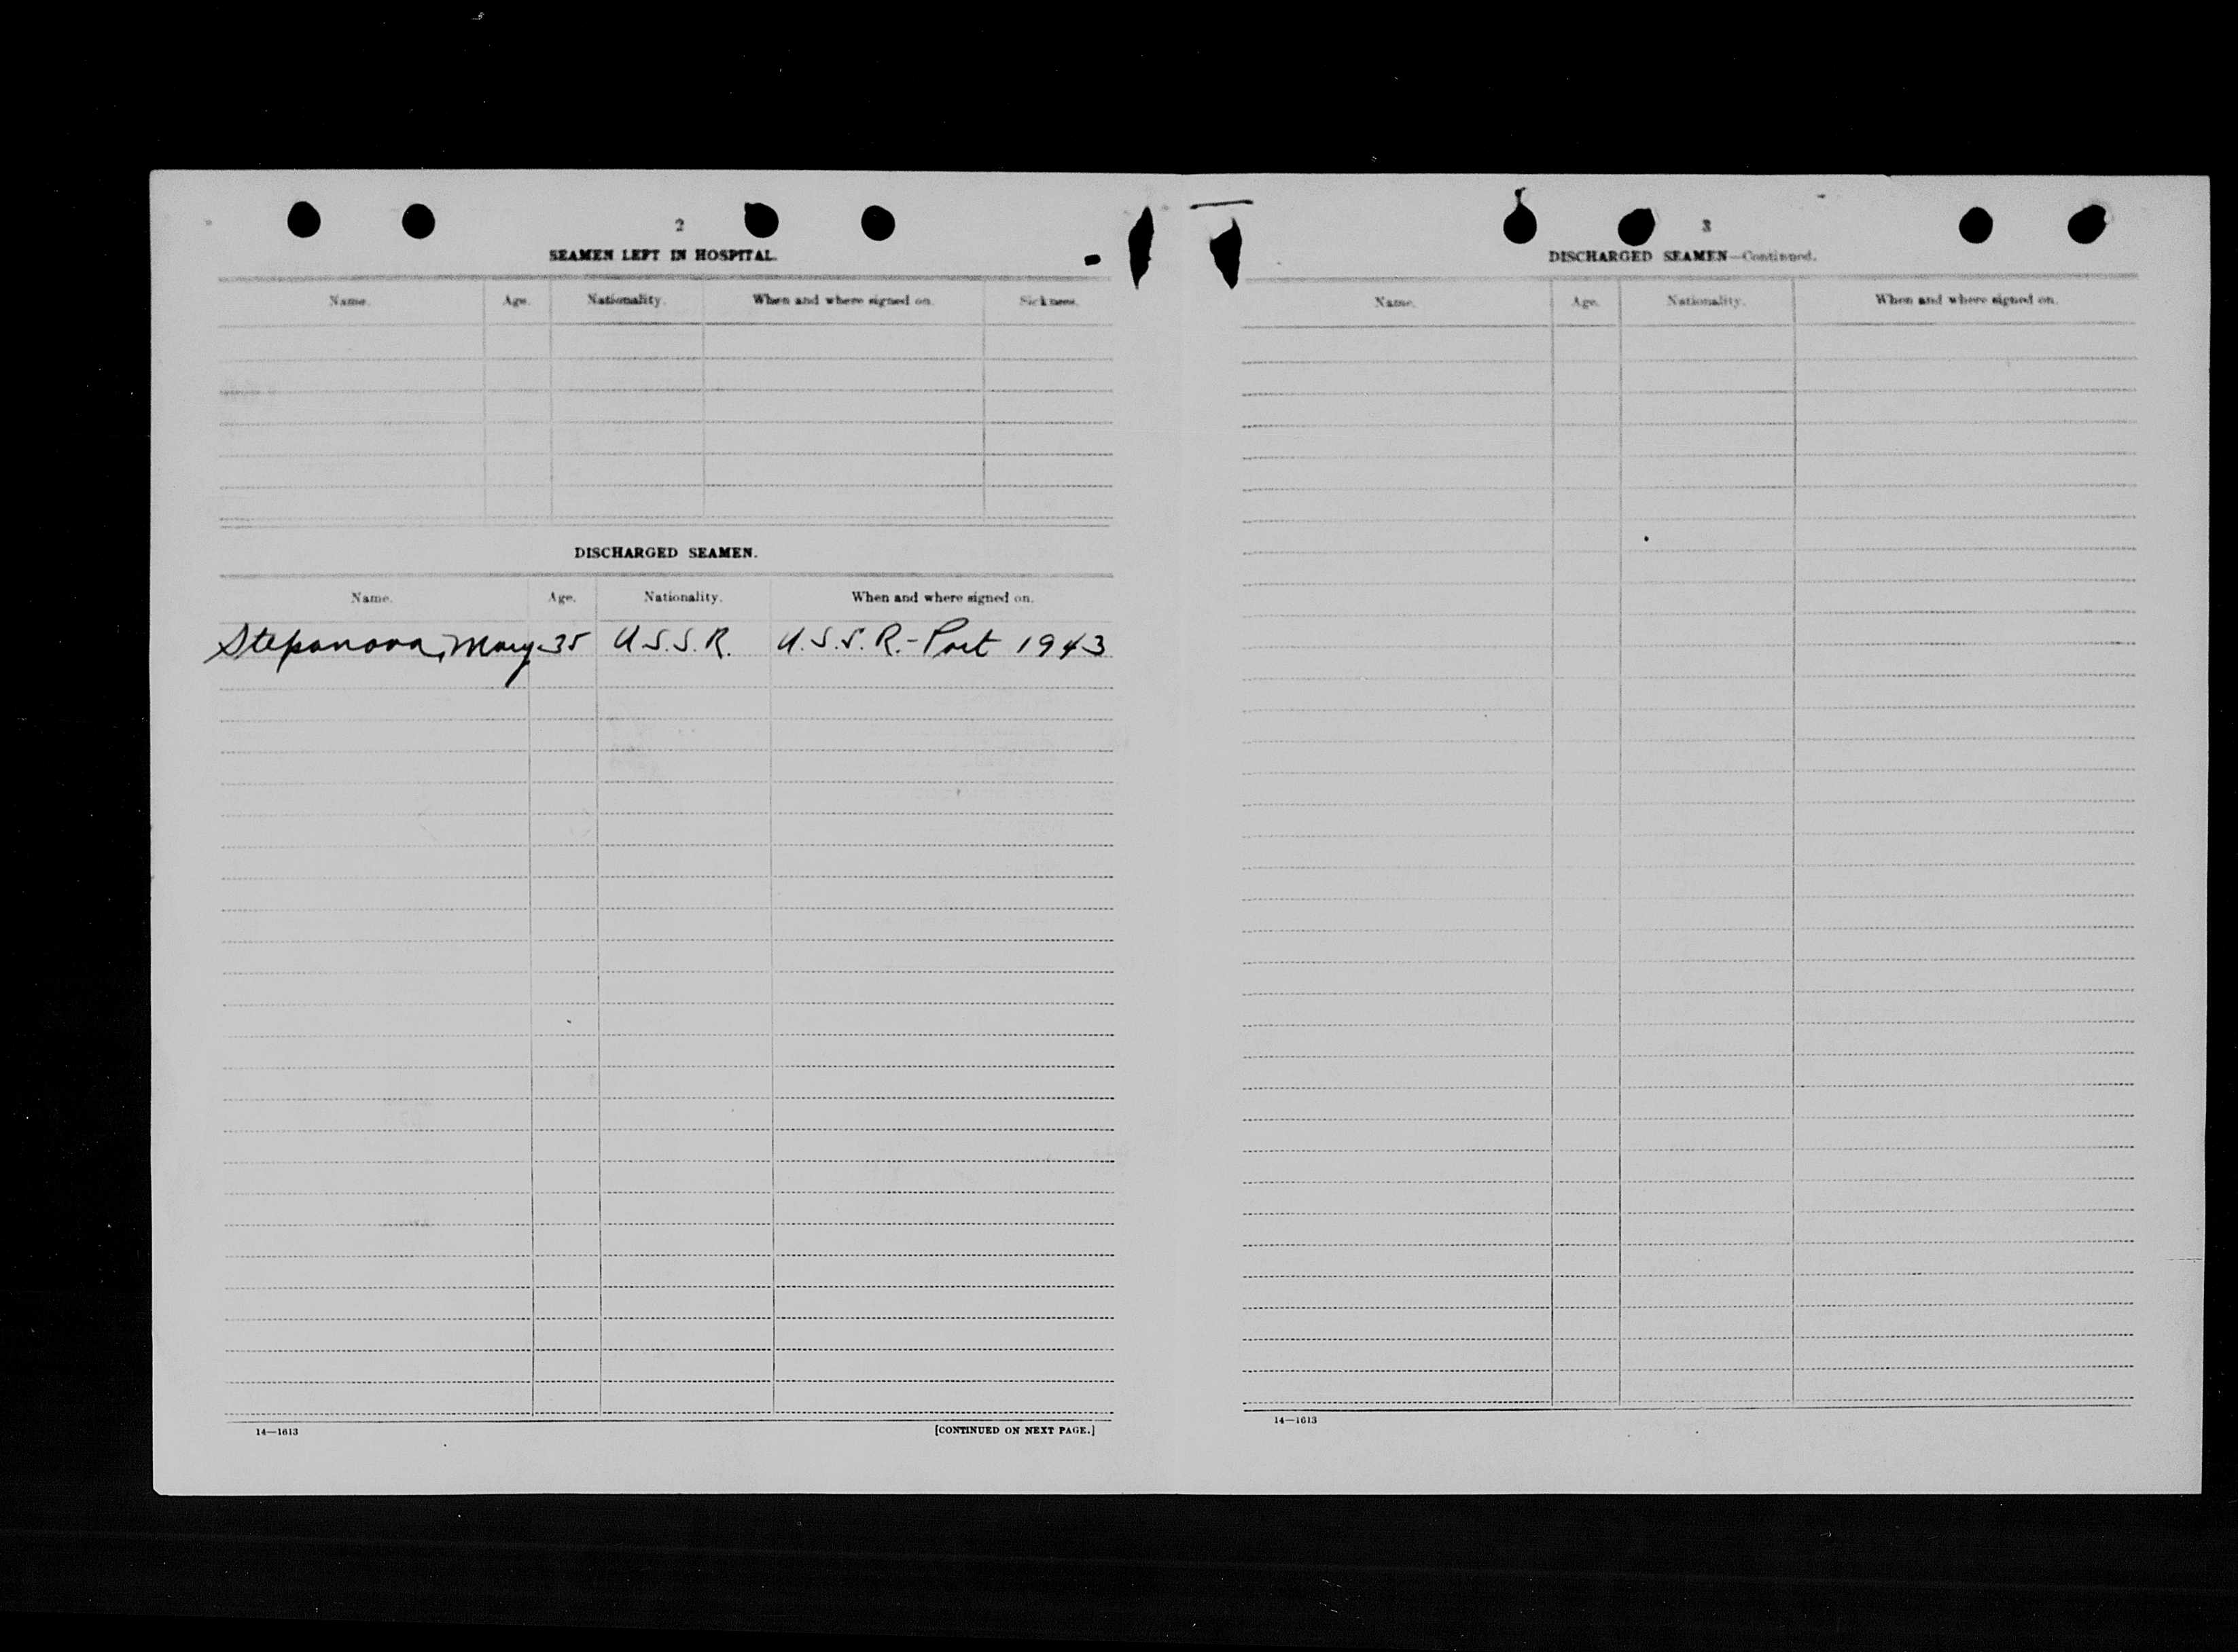 2
SEAMEN LEFT IN HOSPITAL.
Name. Age. Nationality. When and where signed on. Sickness.
DISCHARGED SEAMEN.
Name. Age. Nationality. When and where signed on.
Stepanova, Mary 35 U.S.S.R. U.S.S.R.-Port 1943
14—1613 [CONTINUED ON NEXT PAGE.]
3
DISCHARGED SEAMEN—Continued.
Name. Age. Nationality. When and where signed on.
14—1613